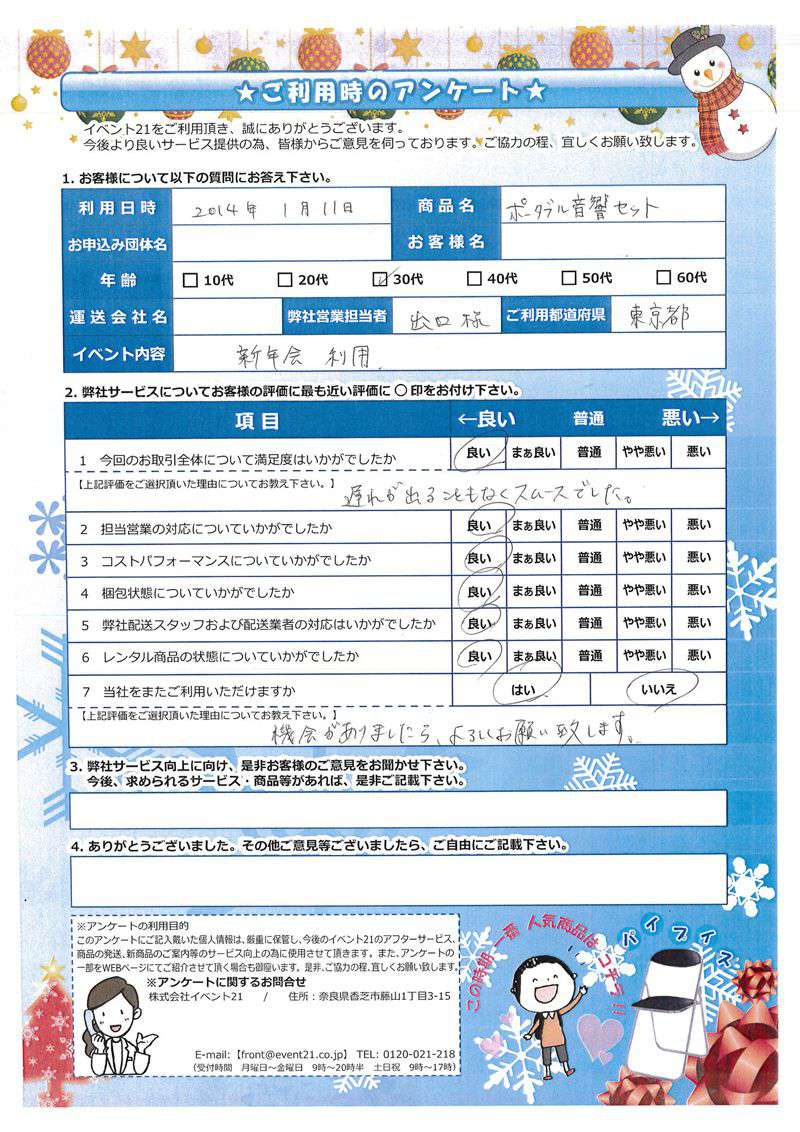 ★ご利用時のアンケート★
イベント21をご利用頂き、誠にありがとうございます。
今後より良いサービス提供の為、皆様からご意見を伺っております。ご協力の程、宜しくお願い致します。
1. お客様について以下の質問にお答え下さい。
利用日時 2014年 1月11日 商品名 ポータブル音響セット
お申込み団体名 お客様名
年齢 10代 20代 30代 40代 50代 60代
運送会社名 弊社営業担当者 出口様 ご利用都道府県 東京都
イベント内容 新年会 利用.
2. 弊社サービスについてお客様の評価に最も近い評価に ○ 印をお付け下さい。
項目 ←良い 普通 悪い→
1 今回のお取引全体について満足度はいかがでしたか 良い まぁ良い 普通 やや悪い 悪い
【上記評価をご選択頂いた理由についてお教え下さい。】
遅れが出ることもなくスムースでした。
2 担当営業の対応についていかがでしたか 良い まぁ良い 普通 やや悪い 悪い
3 コストパフォーマンスについていかがでしたか 良い まぁ良い 普通 やや悪い 悪い
4 梱包状態についていかがでしたか 良い まぁ良い 普通 やや悪い 悪い
5 弊社配送スタッフおよび配送業者の対応はいかがでしたか 良い まぁ良い 普通 やや悪い 悪い
6 レンタル商品の状態についていかがでしたか 良い まぁ良い 普通 やや悪い 悪い
7 当社をまたご利用いただけますか はい いいえ
【上記評価をご選択頂いた理由についてお教え下さい。】
機会がありましたら、よろしくお願い致します。
3. 弊社サービス向上に向け、是非お客様のご意見をお聞かせ下さい。
今後、求められるサービス・商品等があれば、是非ご記載下さい。
4. ありがとうございました。その他ご意見等ございましたら、ご自由にご記載下さい。
※アンケートの利用目的
このアンケートにご記入戴いた個人情報は、厳重に保管し、今後のイベント21のアフターサービス、
商品の発送、新商品のご案内等のサービス向上の為に使用させて頂きます。また、アンケートの
一部をWEBページにてご紹介させて頂く場合も御座います。是非、ご協力の程、宜しくお願い致します。
※アンケートに関するお問合せ
株式会社イベント21 / 住所:奈良県香芝市藤山1丁目3-15
E-mail:【front@event21.co.jp】 TEL: 0120-021-218
(受付時間 月曜日～金曜日 9時～20時半 土日祝 9時～17時)
この時期一番 人気商品は コチラ!!
パイプイス